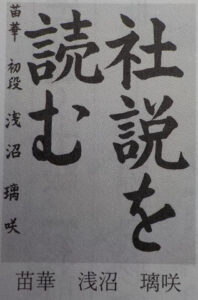 社説を
読む
苗華 初段 浅沼 璃咲
苗華 浅沼 璃咲